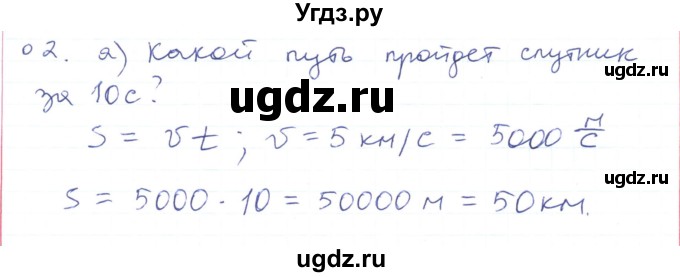 Угдз.ру
о 2. а) Какой путь пройдет спутник
за 10с?
ugdz.ru
ugdz.ru
S = vt; v = 5 км/с = 5000 м/с
S = 5000 · 10 = 50000 м = 50 км.
ugdz.ru
ugdz.ru